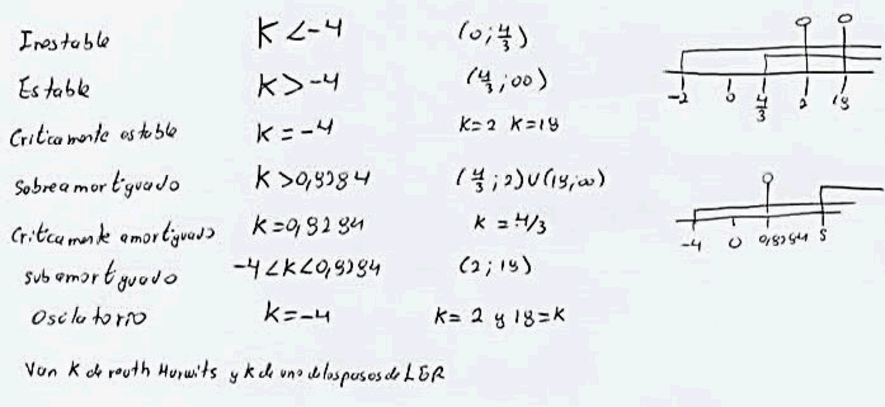 Inestable K <-4 (0; 4/3)
Estable K>-4 (4/3; ∞)
Criticamente estable K=-4 K=2 K=18
Sobreamortiguado K >0,8284 (4/3; 2)U(18;∞)
Criticamente amortiguado K=0,8284 K = 4/3
subamortiguado -4<K<0,8284 (2; 18)
Oscilatorio K=-4 K= 2 y 18=K
Van K de routh Hurwits y K de uno de los pasos de LGR
-2 0 4/3 2 18
-4 0 0,8284 5